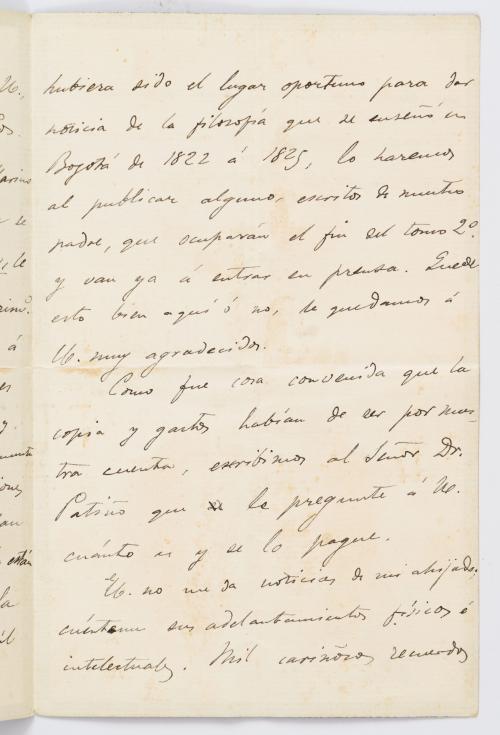 hubiera sido el lugar oportuno para dar
noticia de la filosofía que se enseñó en
Bogotá de 1822 á 1825, lo haremos
al publicar algunos escritos de nuestro
padre, que ocuparán el fin del tomo 2º.
y van ya á entrar en prensa. Quede
esto bien aquí ó no, le quedamos á
U. muy agradecidos.
Como fue cosa convenida que la
copia y gastos habían de ser por nues-
tra cuenta, escribimos al Señor Dr.
Patiño que le pregunte á U.
cuánto es y se lo pague.
U. no me da noticias de mi ahijado;
cuénteme sus adelantamientos físicos é
intelectuales. Mil cariñosos recuerdos